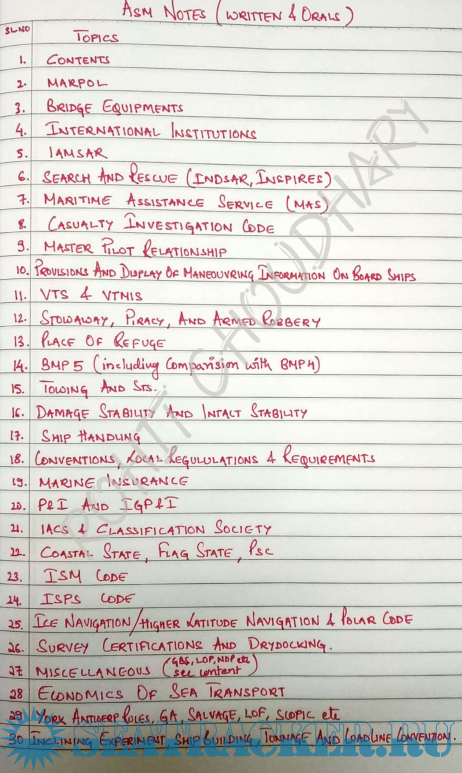 ASM NOTES (WRITTEN & ORALS)
SL.NO TOPICS
1. CONTENTS
2. MARPOL
3. BRIDGE EQUIPMENTS
4. INTERNATIONAL INSTITUTIONS
5. IAMSAR
6. SEARCH AND RESCUE (INDSAR, INSPIRES)
7. MARITIME ASSISTANCE SERVICE (MAS)
8. CASUALTY INVESTIGATION CODE
9. MASTER PILOT RELATIONSHIP
10. PROVISIONS AND DISPLAY OF MANEOUVRING INFORMATION ON BOARD SHIPS
11. VTS & VTMIS
12. STOWAWAY, PIRACY, AND ARMED ROBBERY
13. PLACE OF REFUGE
14. BMP5 (including Comparision with BMP4)
15. TOWING AND STS.
16. DAMAGE STABILITY AND INTACT STABILITY
17. SHIP HANDLING
18. CONVENTIONS, LOCAL REGULULATIONS & REQUIREMENTS
19. MARINE INSURANCE
20. P&I AND IGP&I
21. IACS & CLASSIFICATION SOCIETY
22. COASTAL STATE, FLAG STATE, PSC
23. ISM CODE
24. ISPS CODE
25. ICE NAVIGATION/HIGHER LATITUDE NAVIGATION & POLAR CODE
26. SURVEY CERTIFICATIONS AND DRYDOCKING.
27 MISCELLANEOUS (GBS, LOP, NDP etc see content)
28 ECONOMICS OF SEA TRANSPORT
29 YORK ANTWERP RULES, GA, SALVAGE, LOF, SCOPIC etc
30 INCLINING EXPERIMENT SHIP BUILDING TONNAGE AND LOADLINE CONVENTION.
ROHIT CHOUDHARY
SEATRACKER.RU